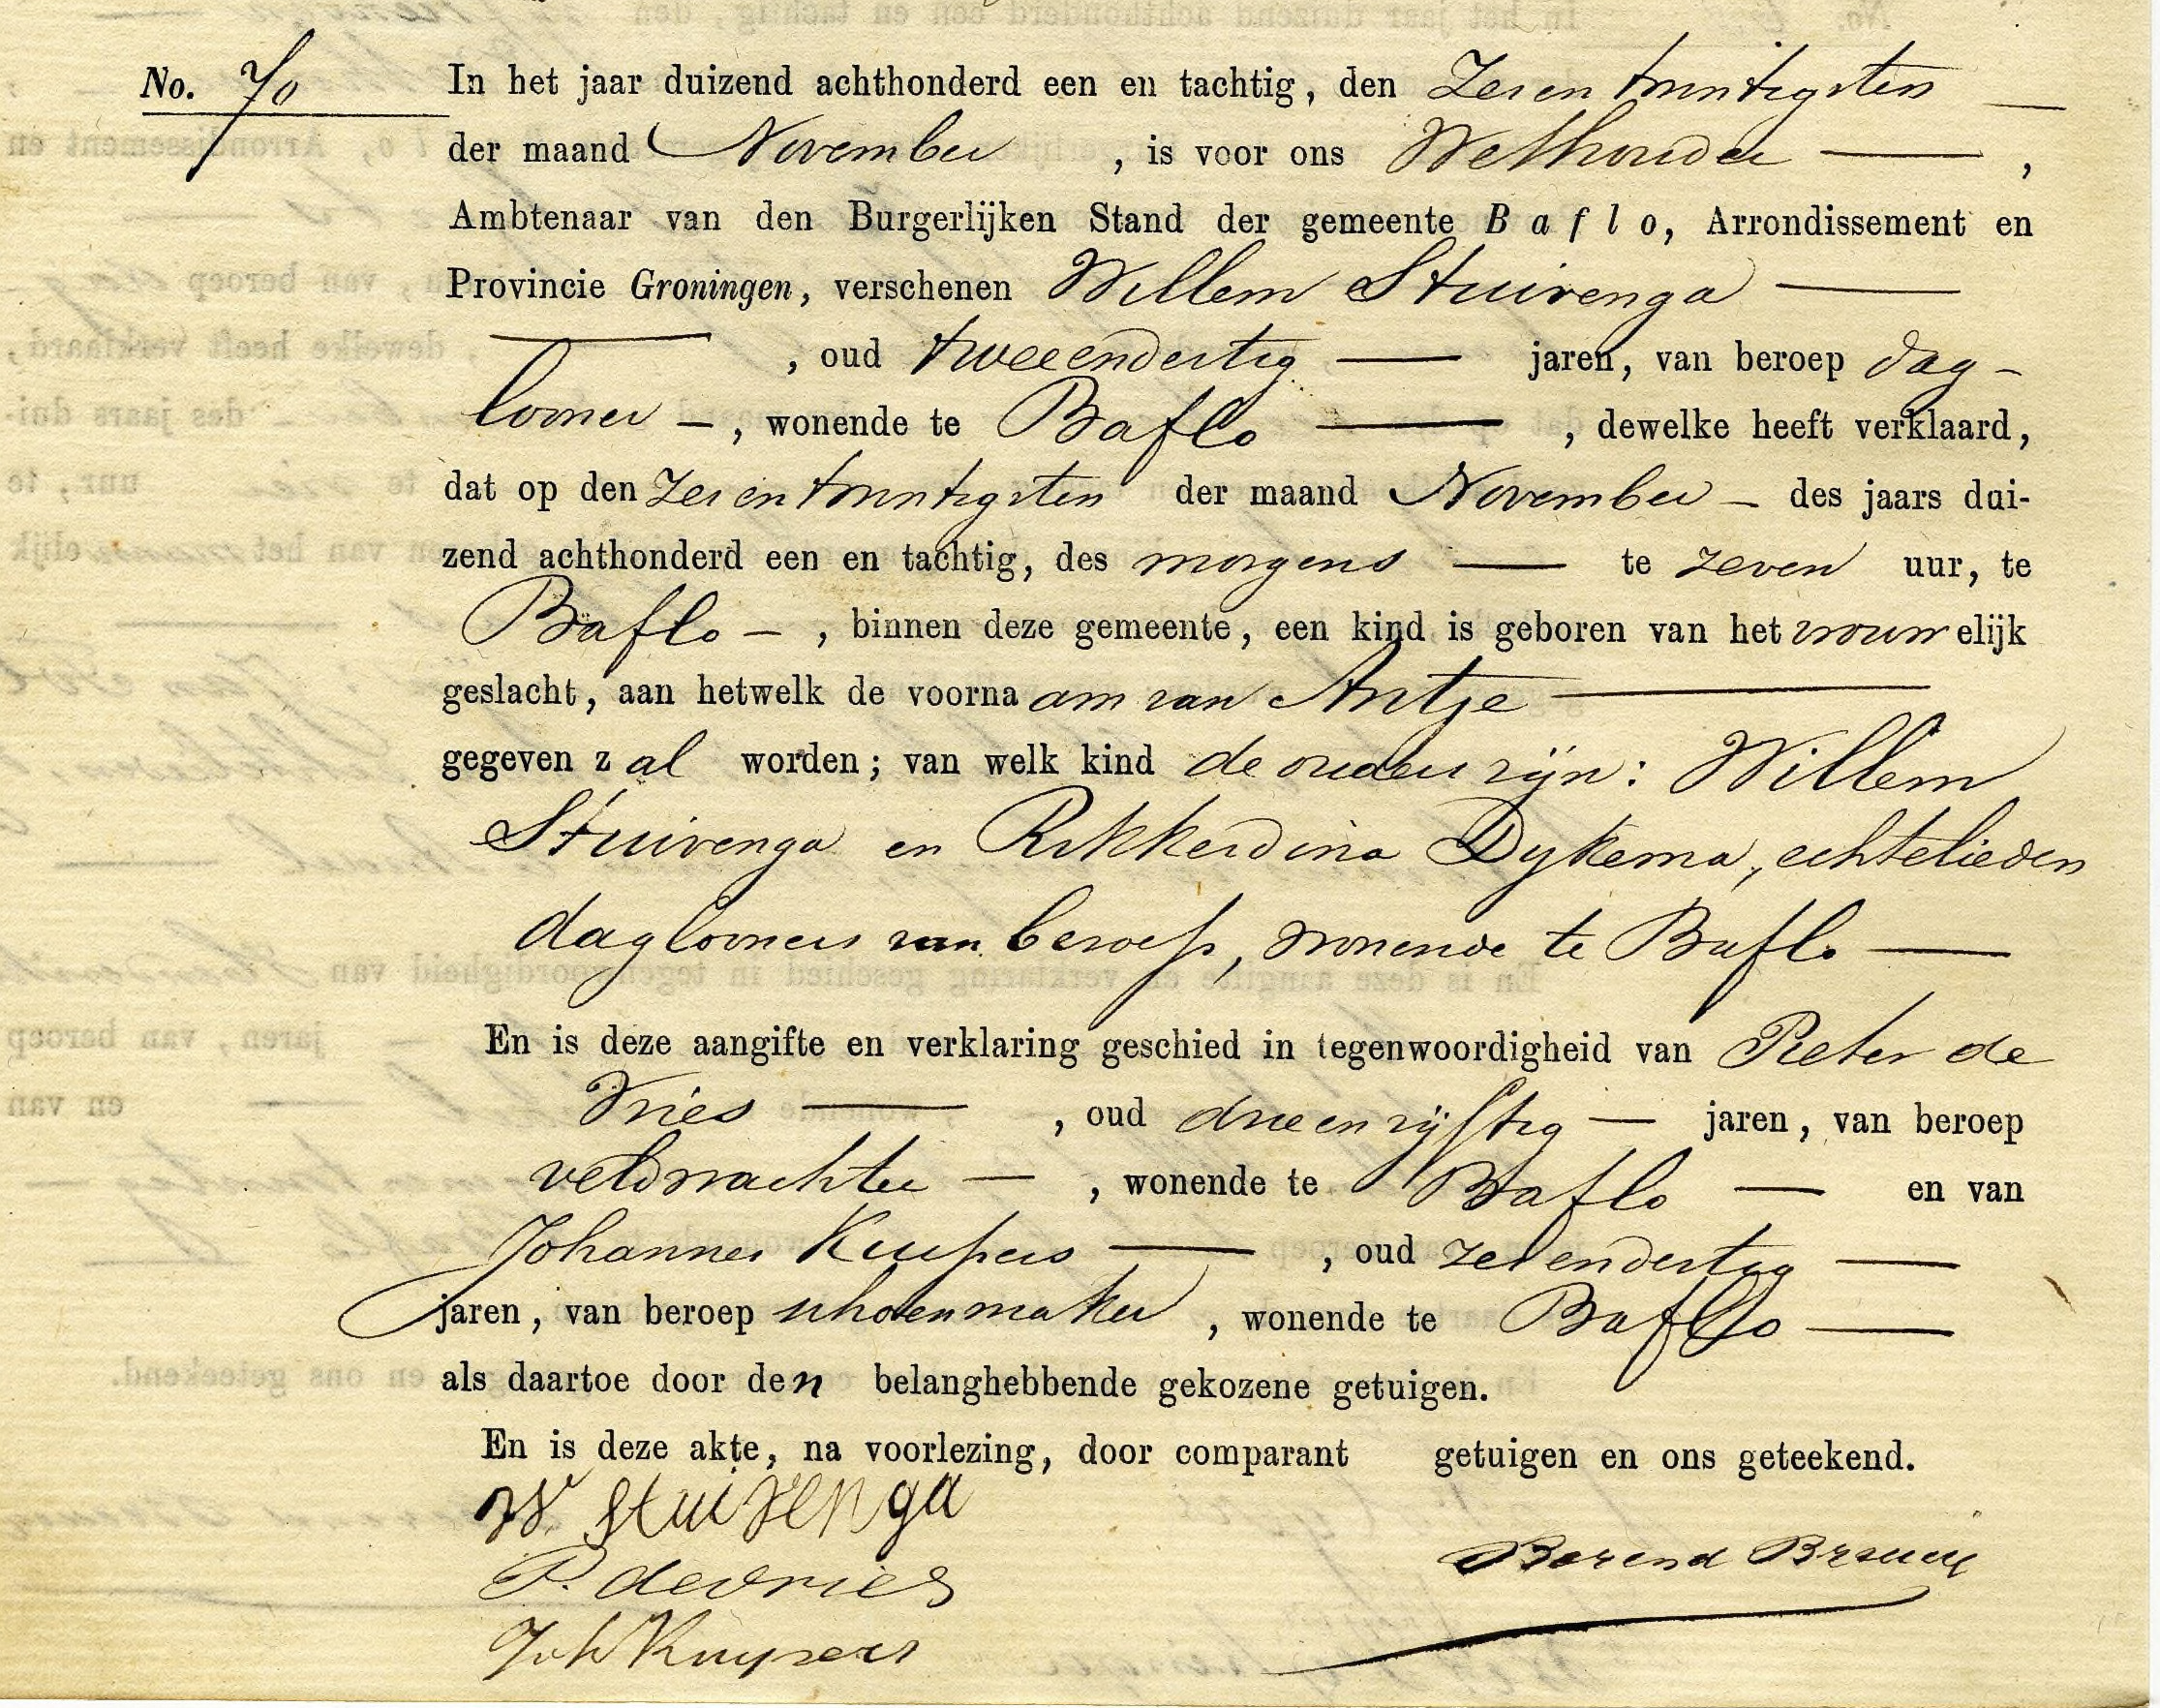 No. 70
In het jaar duizend achthonderd een en tachtig, den Zesentwintigsten
der maand November, is voor ons Wethouder,
Ambtenaar van den Burgerlijken Stand der gemeente Baflo, Arrondissement en
Provincie Groningen, verschenen Willem Stuivenga
, oud tweeendertig jaren, van beroep dag-
looner, wonende te Baflo, dewelke heeft verklaard,
dat op den Zesentwintigsten der maand November des jaars dui-
zend achthonderd een en tachtig, des morgens te zeven uur, te
Baflo, binnen deze gemeente, een kind is geboren van het vrouwelijk
geslacht, aan hetwelk de voornaam van Antje
gegeven zal worden; van welk kind de ouders zijn: Willem
Stuivenga en Rikkerdina Dykema, echtelieden
daglooners van beroep, wonende te Baflo
En is deze aangifte en verklaring geschied in tegenwoordigheid van Pieter de
Vries, oud drieenvijftig jaren, van beroep
veldwachter, wonende te Baflo en van
Johannes Kuipers, oud zesendertig
jaren, van beroep schoenmaker, wonende te Baflo
als daartoe door den belanghebbende gekozene getuigen.
En is deze akte, na voorlezing, door comparant getuigen en ons geteekend.
W Stuivenga
P. de Vries
Joh Kuypers
Berend